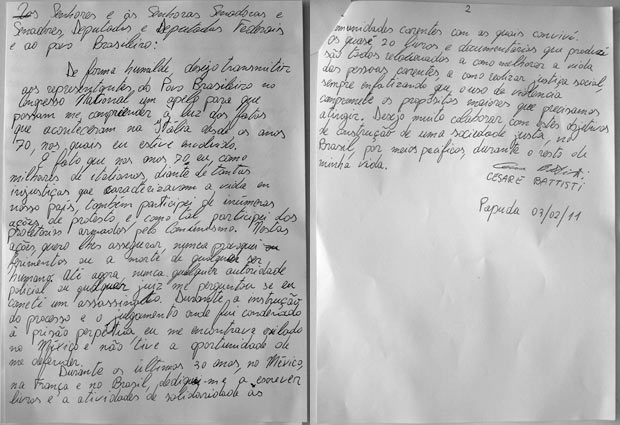 Aos Senhores e às Senhoras Senadoras e
Senadores, Deputados e Deputadas Federais
e ao povo Brasileiro:
De forma humilde desejo transmitir
aos representantes do Povo Brasileiro no
Congresso National um apelo para que
possam me compreender à luz dos fatos
que aconteceram na Itália desde os anos
70, nos quais eu estive involvido.
É fato que nos anos 70 eu, como
milhares de italianos, diante de tantas
injustiças que caracterizavam a vida em
nosso país, também participei de inúmeras
ações de protesto e como tal participei dos
proletários armados pelo Comunismo. Nestas
ações, quero lhes assegurar, nunca provoquei
ferimentos ou a morte de qualquer ser
humano. Até agora, nunca qualquer autoridade
policial ou qualquer juiz me perguntou se eu
cometi um assassinato. Durante a instrução
do processo e o julgamento onde fui condenado
à prisão perpétua eu me encontrava exilado
no México e não tive a oportunidade de
me defender.
Durante os últimos 30 anos, no México,
na França e no Brasil, dediquei-me a escrever
livros e a atividades de solidariedade às
2
comunidades carentes com as quais convivi.
Os quase 20 livros e documentários que produzi
são todos relacionados a como melhorar a vida
das pessoas carentes e como realizar justiça social,
sempre enfatizando que o uso da violência
compromete os propósitos maiores que precisamos
atingir. Desejo muito colaborar com estes objetivos
de construção de uma sociedade justa, no
Brasil, por meios pacíficos, durante o resto de
minha vida.
CESARE BATTISTI
Papuda 03/02/11